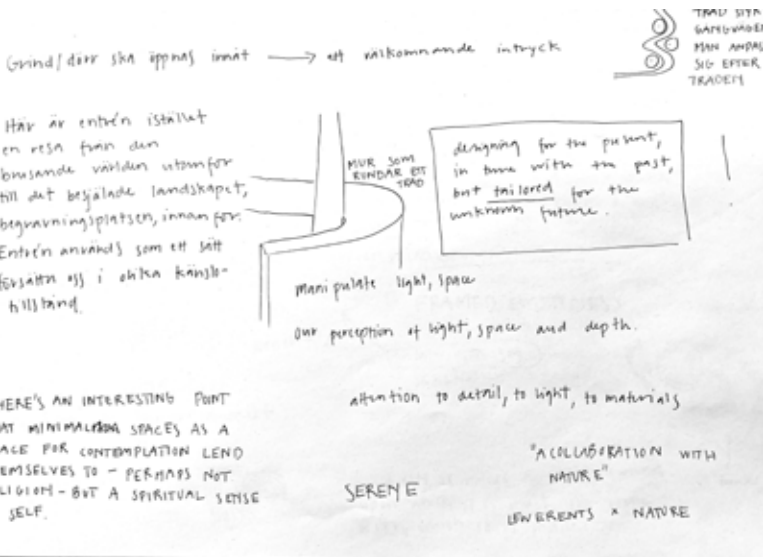 TRÄD STYR
GÅNGVÄGEN
MAN ANPAS
SIG EFTER
TRÄDEN
Grind/dörr ska öppnas innåt → ett välkomnande intryck
Här är entrén istället
en resa från den
brusande världen utanför
till det besjälade landskapet,
begravningsplatsen, innanför.
Entrén används som ett sätt
försätta oss i olika känslo-
tillstånd.
MUR SOM
RUNDAR ETT
TRÄD
designing for the present,
in tune with the past,
but tailored for the
unknown future.
manipulate light, space
our perception of light, space and depth.
HERE'S AN INTERESTING POINT
AT MINIMAL SPACES AS A
ACE FOR CONTEMPLATION LEND
EMSELVES TO - PERHAPS NOT
LIGION - BUT A SPIRITUAL SENSE
SELF.
attention to detail, to light, to materials
SERENE
"A COLLABORATION WITH
NATURE"
LEWERENTS × NATURE